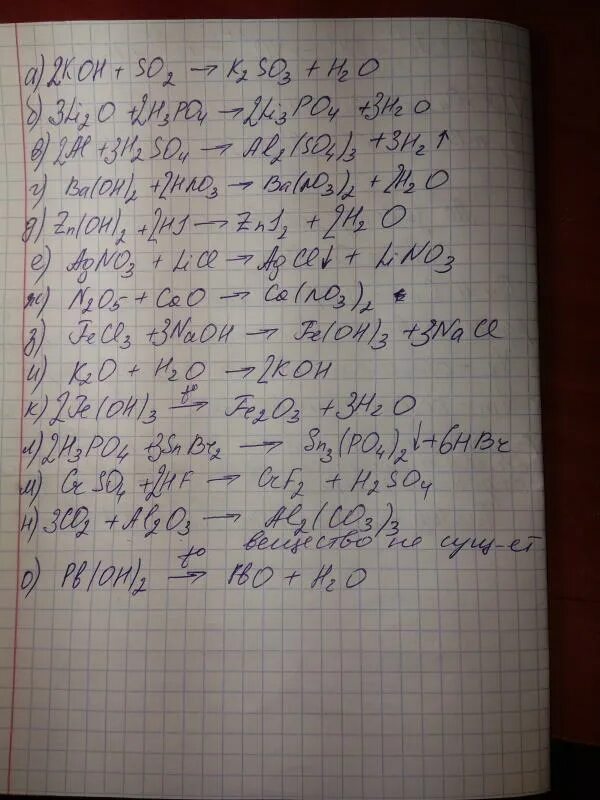 а) 2KOH + SO₂ → K₂SO₃ + H₂O
б) 3Li₂O + 2H₃PO₄ → 2Li₃PO₄ + 3H₂O
в) 2Al + 3H₂SO₄ → Al₂(SO₄)₃ + 3H₂↑
г) Ba(OH)₂ + 2HNO₃ → Ba(NO₃)₂ + 2H₂O
д) Zn(OH)₂ + 2HJ → ZnJ₂ + 2H₂O
е) AgNO₃ + LiCl → AgCl↓ + LiNO₃
ж) N₂O₅ + CaO → Ca(NO₃)₂
з) FeCl₃ + 3NaOH → Fe(OH)₃ + 3NaCl
и) K₂O + H₂O → 2KOH
к) 2Fe(OH)₃ t° → Fe₂O₃ + 3H₂O
л) 2H₃PO₄ + 3SnBr₂ → Sn₃(PO₄)₂↓ + 6HBr
м) CrSO₄ + 2HF → CrF₂ + H₂SO₄
н) 3CO₂ + Al₂O₃ → Al₂(CO₃)₃
вещество не сущ-ет
о) Pb(OH)₂ t° → PbO + H₂O